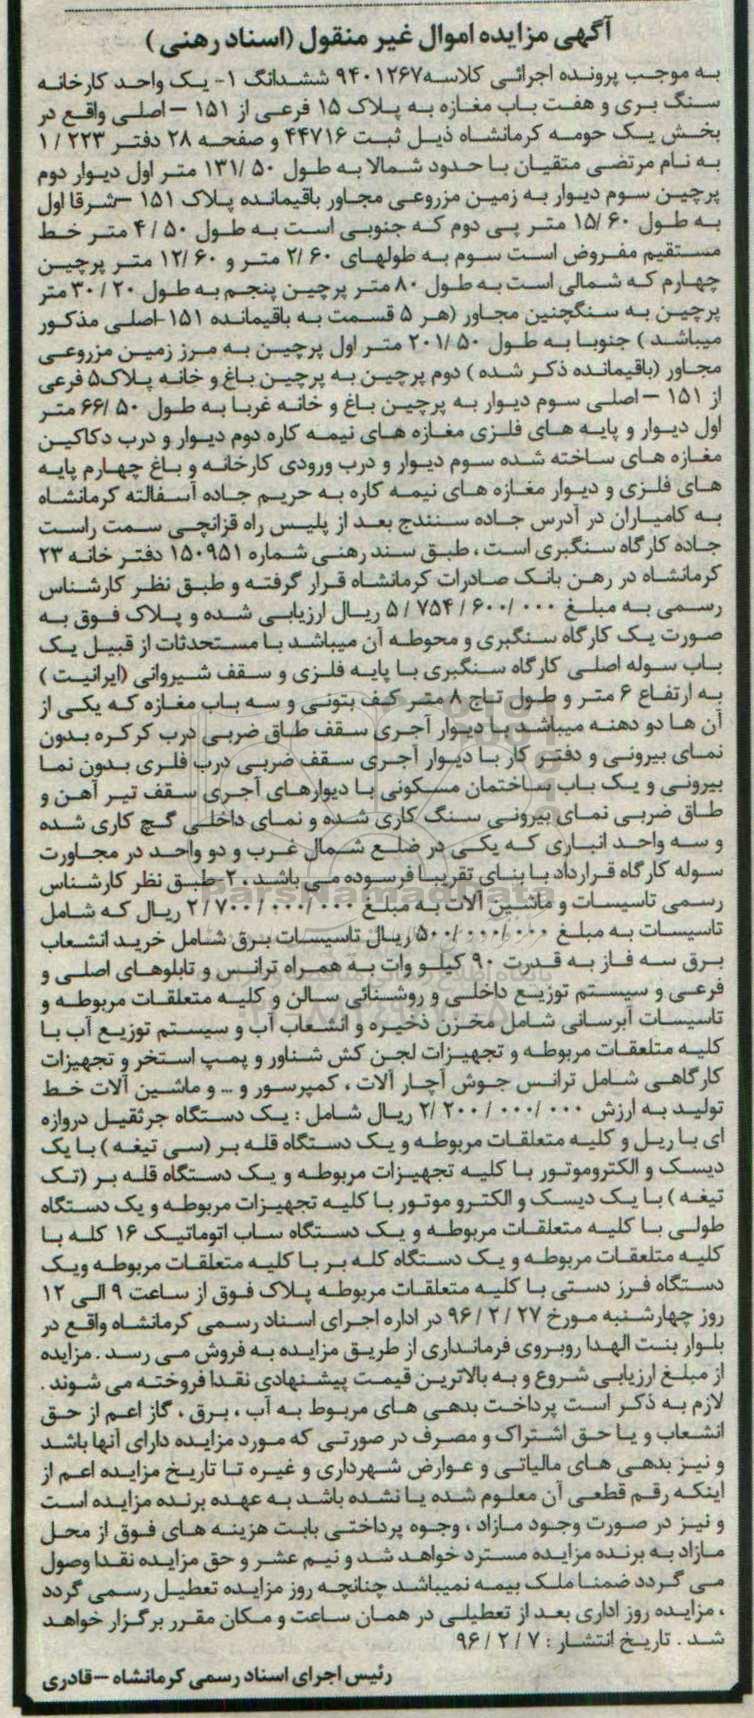 آگهی مزایده اموال غیر منقول (اسناد رهنی)
به موجب پرونده اجرائی کلاسه ۹۴۰۱۲۶۷ ششدانگ ۱- یک واحد کارخانه
سنگ بری و هفت باب مغازه به پلاک ۱۵ فرعی از ۱۵۱ – اصلی واقع در
بخش یک حومه کرمانشاه ذیل ثبت ۴۴۷۱۶ و صفحه ۲۸ دفتر ۱/۲۲۳
به نام مرتضی متقیان با حدود شمالا به طول ۱۳۱/۵۰ متر اول دیوار دوم
پرچین سوم دیوار به زمین مزروعی مجاور باقیمانده پلاک ۱۵۱ –شرقا اول
به طول ۱۵/۶۰ متر پی دوم که جنوبی است به طول ۴/۵۰ متر خط
مستقیم مفروض است سوم به طولهای ۲/۶۰ متر و ۱۲/۶۰ متر پرچین
چهارم که شمالی است به طول ۸۰ متر پرچین پنجم به طول ۳۰/۲۰ متر
پرچین به سنگچنین مجاور (هر ۵ قسمت به باقیمانده ۱۵۱-اصلی مذکور
میباشد) جنوبا به طول ۲۰۱/۵۰ متر اول پرچین به مرز زمین مزروعی
مجاور (باقیمانده ذکر شده) دوم پرچین به پرچین باغ و خانه پلاک۵ فرعی
از ۱۵۱ – اصلی سوم دیوار به پرچین باغ و خانه غربا به طول ۶۶/۵۰ متر
اول دیوار و پایه های فلزی مغازه های نیمه کاره دوم دیوار و درب دکاکین
مغازه های ساخته شده سوم دیوار و درب ورودی کارخانه و باغ چهارم پایه
های فلزی و دیوار مغازه های نیمه کاره به حریم جاده آسفالته کرمانشاه
به کامیاران در آدرس جاده سنندج بعد از پلیس راه قزانچی سمت راست
جاده کارگاه سنگبری است ، طبق سند رهنی شماره ۱۵۰۹۵۱ دفتر خانه ۲۳
کرمانشاه در رهن بانک صادرات کرمانشاه قرار گرفته و طبق نظر کارشناس
رسمی به مبلغ ۵/۷۵۴/۶۰۰/۰۰۰ ریال ارزیابی شده و پلاک فوق به
صورت یک کارگاه سنگبری و محوطه آن میباشد با مستحدثات از قبیل یک
باب سوله اصلی کارگاه سنگبری با پایه فلزی و سقف شیروانی (ایرانیت)
به ارتفاع ۶ متر و طول تاج ۸ متر کف بتونی و سه باب مغازه که یکی از
آن ها دو دهنه میباشد با دیوار آجری سقف طاق ضربی درب کرکره بدون
نمای بیرونی و دفتر کار با دیوار آجری سقف ضربی درب فلزی بدون نما
بیرونی و یک باب ساختمان مسکونی با دیوارهای آجری سقف تیر آهن و
طاق ضربی نمای بیرونی سنگ کاری شده و نمای داخلی گچ کاری شده
و سه واحد انباری که یکی در ضلع شمال غرب و دو واحد در مجاورت
سوله کارگاه قرارداد با بنای تقریبا فرسوده می باشد . ۲-طبق نظر کارشناس
رسمی تاسیسات و ماشین آلات به مبلغ ۲/۷۰۰/۰۰۰/۰۰۰ ریال که شامل
تاسیسات به مبلغ ۵۰۰/۰۰۰/۰۰۰ ریال تاسیسات برق شامل خرید انشعاب
برق سه فاز به قدرت ۹۰ کیلو وات به همراه ترانس و تابلوهای اصلی و
فرعی و سیستم توزیع داخلی و روشنائی سالن و کلیه متعلقات مربوطه و
تاسیسات آبرسانی شامل مخزن ذخیره و انشعاب آب و سیستم توزیع آب با
کلیه متلعقات مربوطه و تجهیزات لجن کش شناور و پمپ استخر و تجهیزات
کارگاهی شامل ترانس جوش آچار آلات ، کمپرسور و ... و ماشین آلات خط
تولید به ارزش ۲/۲۰۰/۰۰۰/۰۰۰ ریال شامل : یک دستگاه جرثقیل دروازه
ای با ریل و کلیه متعلقات مربوطه و یک دستگاه قله بر (سی تیغه) با یک
دیسک و الکتروموتور با کلیه تجهیزات مربوطه و یک دستگاه قله بر (تک
تیغه) با یک دیسک و الکترو موتور با کلیه تجهیزات مربوطه و یک دستگاه
طولی با کلیه متعلقات مربوطه و یک دستگاه ساب اتوماتیک ۱۶ کله با
کلیه متلعقات مربوطه و یک دستگاه کله بر با کلیه متعلقات مربوطه ویک
دستگاه فرز دستی با کلیه متعلقات مربوطه پلاک فوق از ساعت ۹ الی ۱۲
روز چهارشنبه مورخ ۹۶/۲/۲۷ در اداره اجرای اسناد رسمی کرمانشاه واقع در
بلوار بنت الهدا روبروی فرمانداری از طریق مزایده به فروش می رسد . مزایده
از مبلغ ارزیابی شروع و به بالاترین قیمت پیشنهادی نقدا فروخته می شوند .
لازم به ذکر است پرداخت بدهی های مربوط به آب ، برق ، گاز اعم از حق
انشعاب و یا حق اشتراک و مصرف در صورتی که مورد مزایده دارای آنها باشد
و نیز بدهی های مالیاتی و عوارض شهرداری و غیره تا تاریخ مزایده اعم از
اینکه رقم قطعی آن معلوم شده یا نشده باشد به عهده برنده مزایده است
و نیز در صورت وجود مازاد ، وجوه پرداختی بابت هزینه های فوق از محل
مازاد به برنده مزایده مسترد خواهد شد و نیم عشر و حق مزایده نقدا وصول
می گردد ضمنا ملک بیمه نمیباشد چنانچه روز مزایده تعطیل رسمی گردد
، مزایده روز اداری بعد از تعطیلی در همان ساعت و مکان مقرر برگزار خواهد
شد . تاریخ انتشار : ۹۶/۲/۷
رئیس اجرای اسناد رسمی کرمانشاه –قادری
ParsNamadData